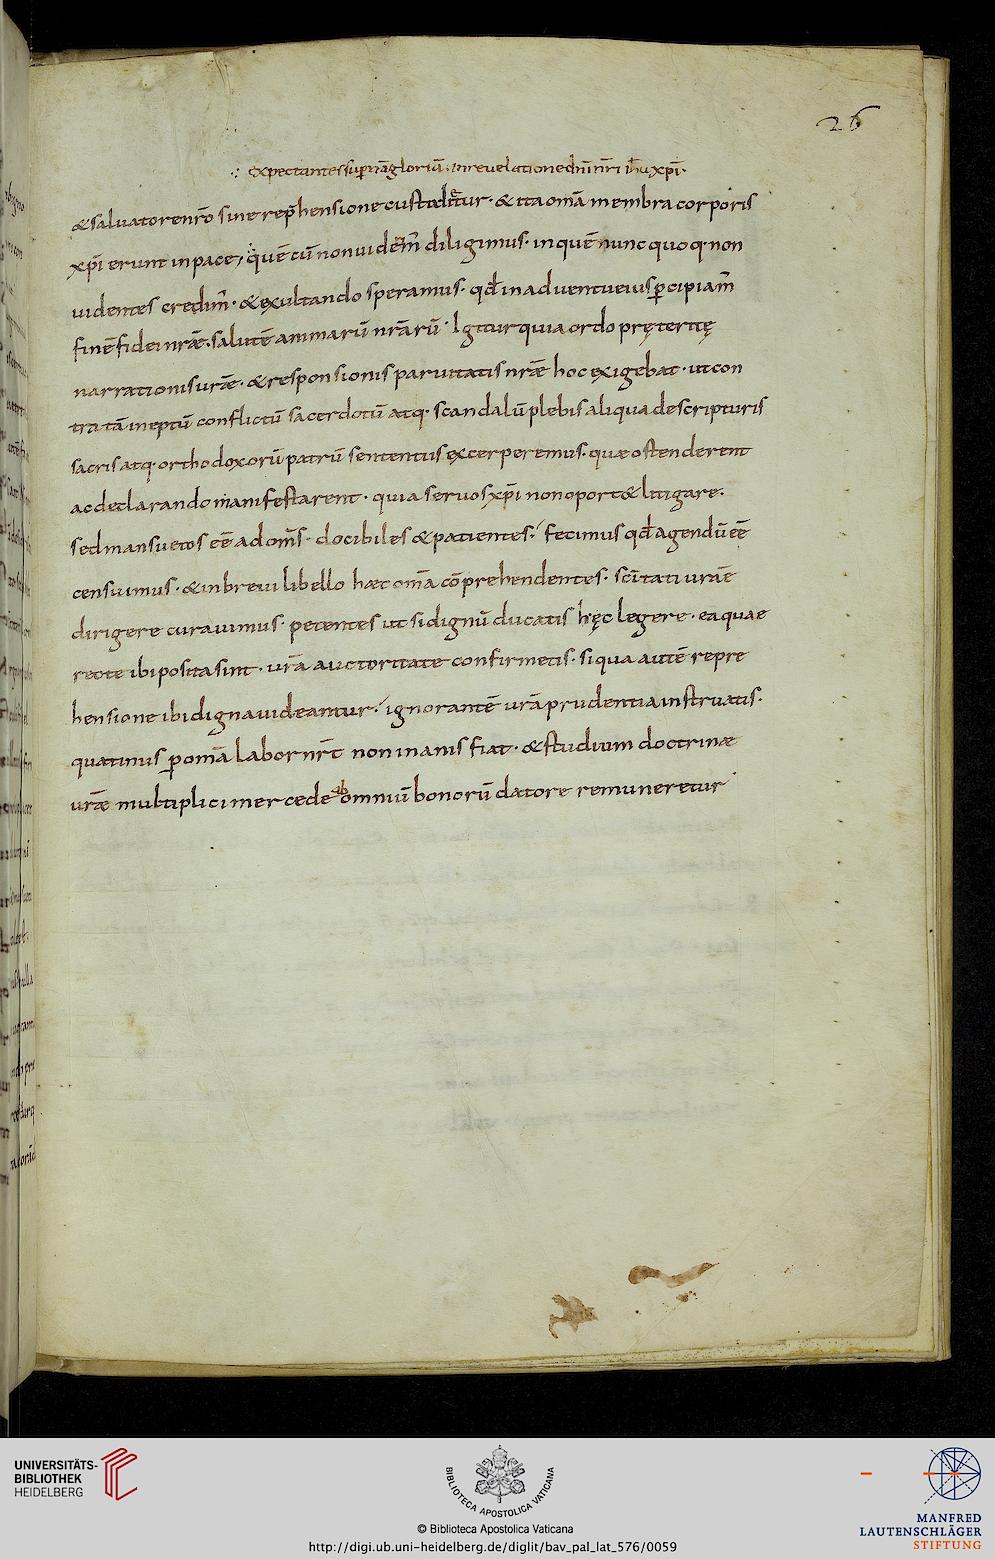 26
∴ expectantes supernā gloriā. In reuelatione dn̄i nr̄i ih̄u xp̄i·
& saluatore nr̄o sine rep̄hensione custodiatur· & ita om̄a membra corporis
xp̄i erunt in pace, ∴ quē cū non uidem̄ diligimus· in quē nunc quoq· non
uidentes credim̄· & exultando speramus· qđ in aduentu eius ꝑcipiam̄
finē fidei nr̄æ. salutē animarū nr̄arū· Igitur quia ordo pręteritę
narrationis ur̄æ· & responsionis paruitatis nr̄æ hoc exigebat· ut con
tra tā ineptū conflictū sacerdotū atq· scandalū plebis aliqua de scripturis
sacris atq· orthodoxorū patrū sententiis excerperemus· quæ ostenderent
ac declarando manifestarent· quia seruos xp̄i non oport& litigare·
sed mansuetos eē ad om̄s· docibiles & patientes· fecimus qđ agendū eē
censuimus· & in breui libello hæc om̄a cōprehendentes· sc̄itati ur̄æ
dirigere curauimus· petentes ut si dignū ducatis hęc legere· ea quae
recte ibi posita sint· ur̄a auctoritate confirmetis· si qua autē repre
hensione ibi digna uideantur· ignorantē ur̄a prudentia instruatis·
quatinus ꝑ om̄a labor nr̄ non inanis fiat· & studium doctrinæ
ur̄æ multiplici mercede ab omniū bonorū datore remuneretur·
UNIVERSITÄTS-
BIBLIOTHEK
HEIDELBERG
BIBLIOTECA APOSTOLICA VATICANA
© Biblioteca Apostolica Vaticana
http://digi.ub.uni-heidelberg.de/diglit/bav_pal_lat_576/0059
MANFRED
LAUTENSCHLÄGER
STIFTUNG